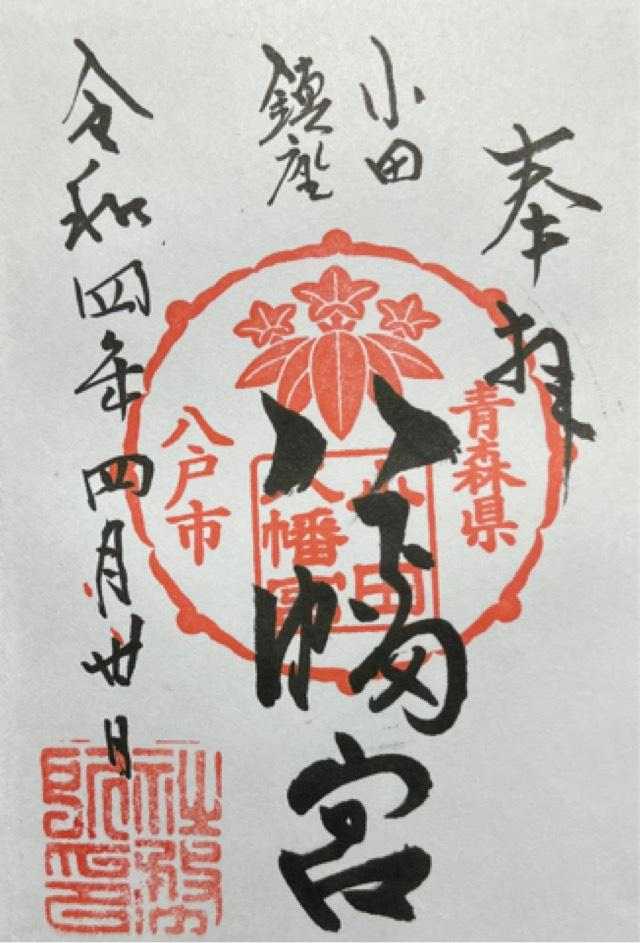 奉拝
小田
鎮座
八幡宮
令和四年四月廿日
青森県
小田
八幡宮
八戸市
社務
所印